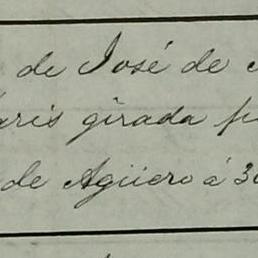 de José de
girada
de Agüero á 30